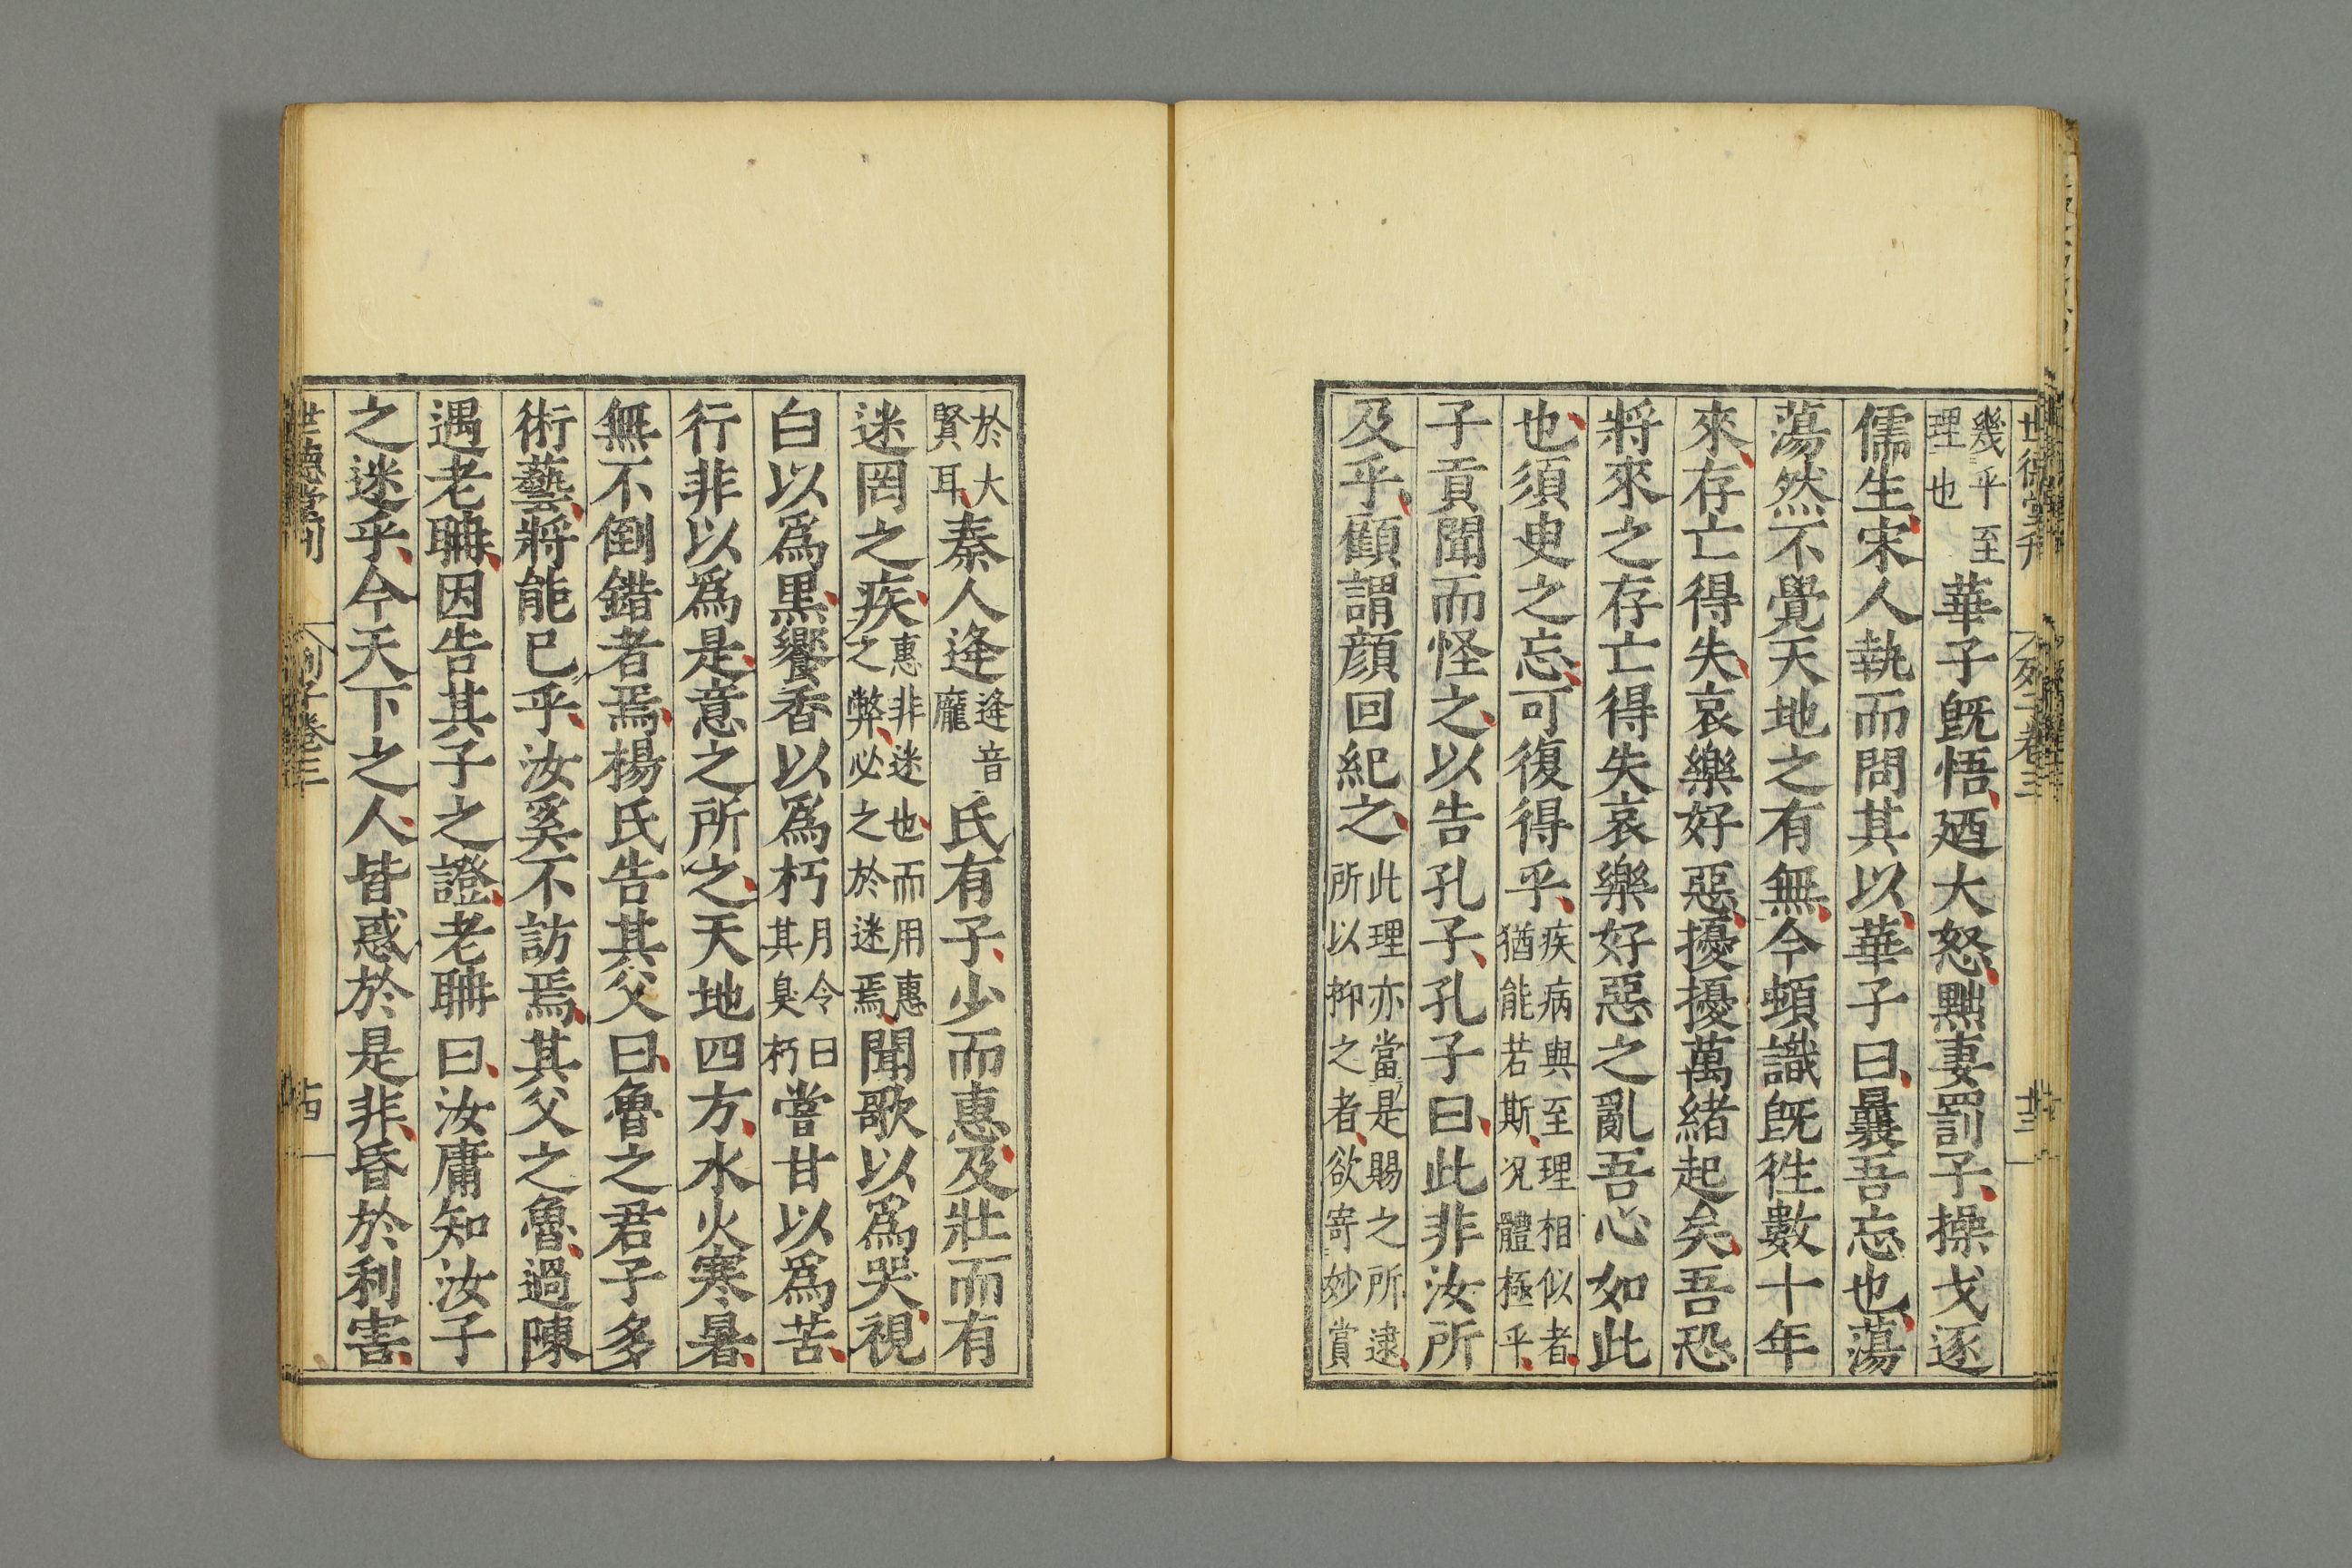 幾乎至理也華子旣悟廼大怒黜妻罰子操戈逐
儒生宋人執而問其以華子曰曩吾忘也蕩
蕩然不覺天地之有無今頓識旣徃數十年
來存亡得失哀樂好惡擾擾萬緒起矣吾恐
將來之存亡得失哀樂好惡之亂吾心如此
也須臾之忘可復得乎疾病與至理相似者猶能若斯况體極乎
子貢聞而怪之以告孔子孔子曰此非汝所
及乎顧謂顔回紀之此理亦當是賜之所逮所以抑之者欲寄妙賞
於大賢耳秦人逄逄音龐氏有子少而惠及壯而有
迷罔之疾惠非迷也而用惠之弊必之於迷焉聞歌以爲哭視
白以爲黒饗香以爲朽月令曰其臭朽嘗甘以爲苦
行非以爲是意之所之天地四方水火寒暑
無不倒錯者焉楊氏告其父曰魯之君子多
術藝將能已乎汝奚不訪焉其父之魯過陳
遇老聃因告其子之證老聃曰汝庸知汝子
之迷乎今天下之人皆惑於是非昏於利害
世德堂刊
列子卷三
十四